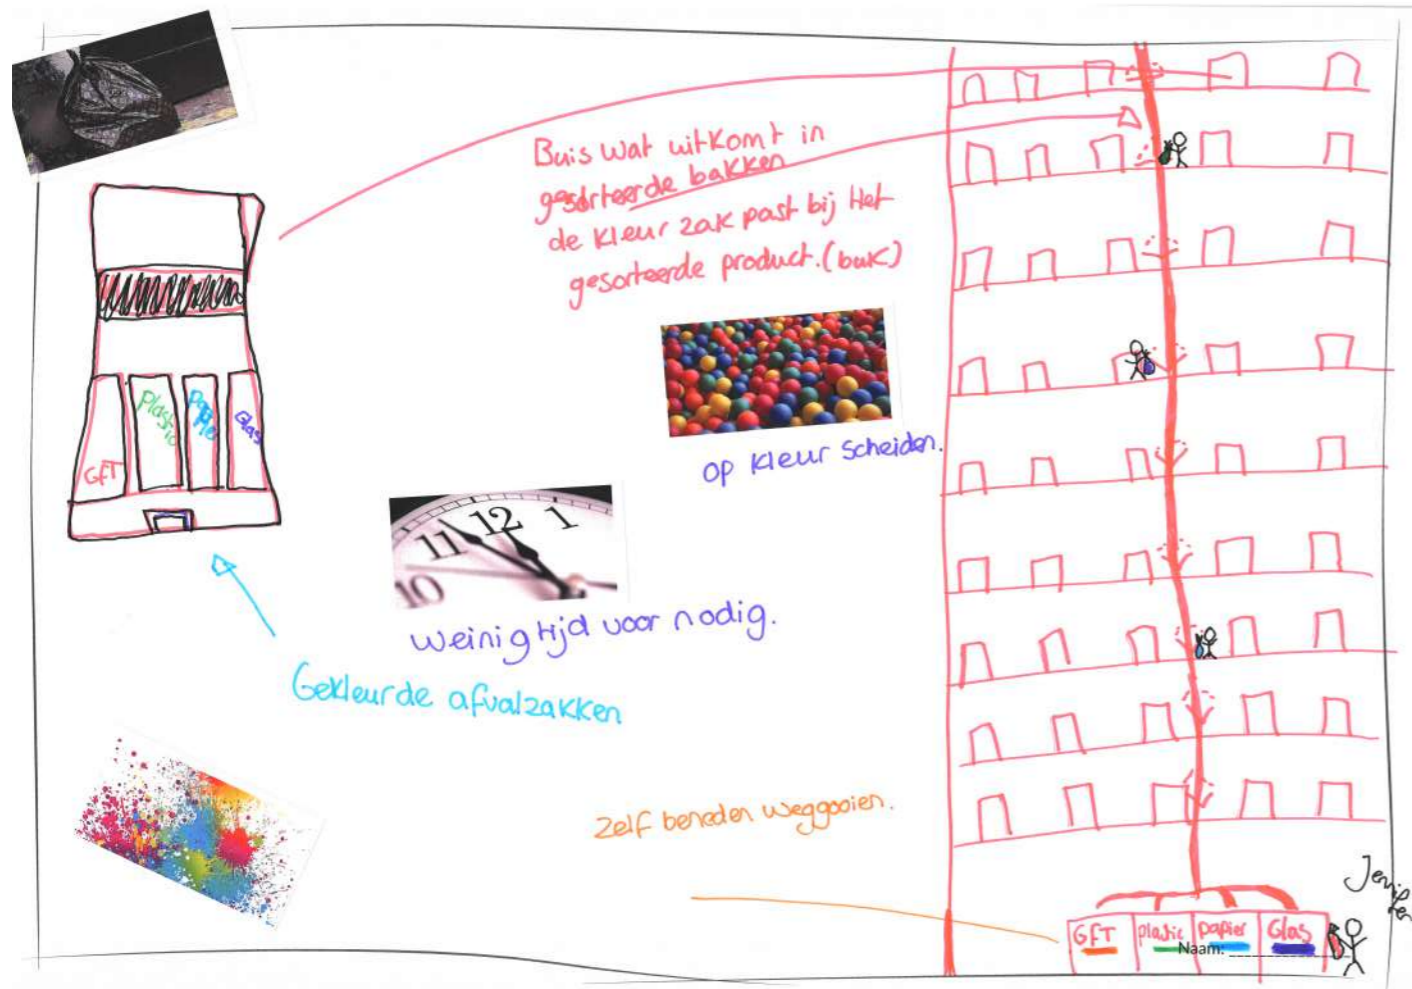 Buis wat uitkomt in
gesorteerde bakken
de kleur zak past bij Het
gesorteerde product. (bak)
GFT
plastic
papier
Glas
op kleur scheiden.
11 12 1
10
weinig tijd voor nodig.
Gekleurde afvalzakken
Zelf beneden weggooien.
Jennifer
GFT plastic papier Glas
Naam: